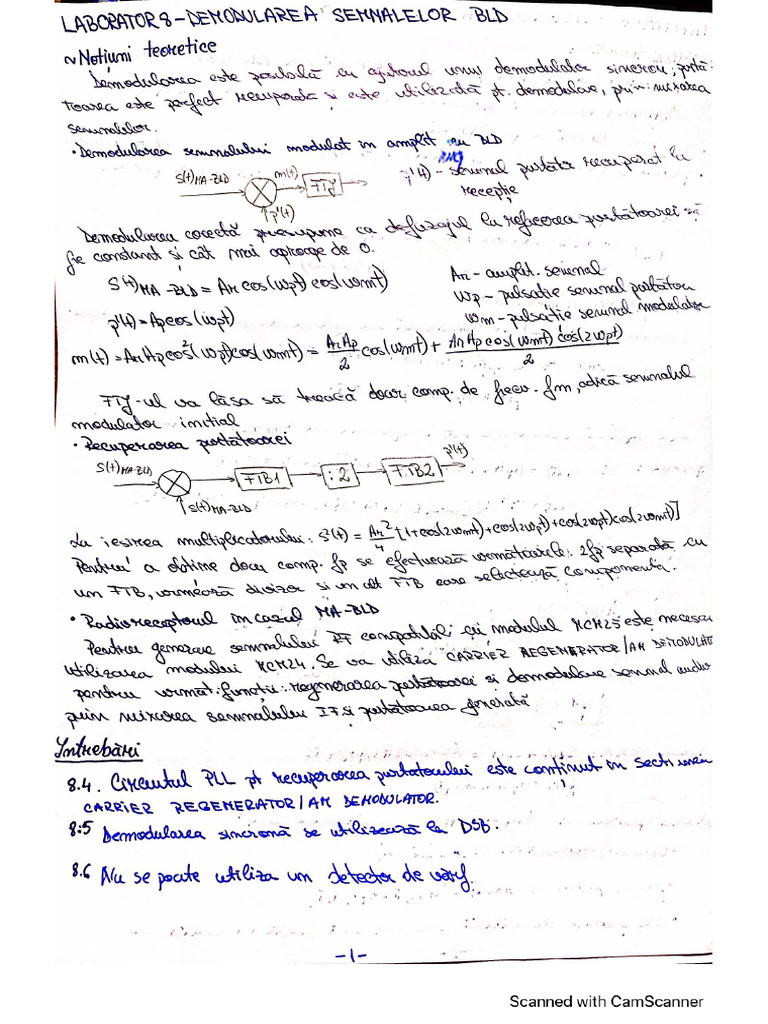 LABORATOR 8 - DEMODULAREA SEMNALELOR BLD
~ Noțiuni teoretice
Demodularea este posibilă cu ajutorul unui demodulator sincron, purtă-
toarea este perfect recuperată și este utilizată pt. demodulare, prin mixarea
semnalelor.
• Demodularea semnalului modulat în amplit cu BLD
S(t)MA-BLD
m(t)
FTJ
p'(t)
p'(t) - semnal purtător recuperat la
recepție
Demodularea corectă presupune ca defazajul la refacerea purtătoarei să
fie constant și cât mai aproape de 0.
S(t)MA-BLD = An cos(wpt) cos(wmt)
An - amplit. semnal
wp - pulsație semnal purtător
p'(t) = Ap cos(wpt)
wm - pulsație semnal modulator
m(t) = An Ap cos²(wpt) cos(wmt) = An Ap / 2 cos(wmt) + An Ap cos(wmt) cos(2wpt) / 2
FTJ-ul va lăsa să treacă doar comp. de frecv. fm, adică semnalul
modulator inițial
• Recuperarea purtătoarei
S(t)MA-BLD
FTB1
:2
FTB2
p'(t)
S(t)MA-BLD
La ieșirea multiplicatorului: S'(t) = An²/4 [1+cos(2wmt)+cos(2wpt)+cos(2wpt)cos(2wmt)]
Pentru a obține doar comp. fp se efectuează următoarele: 2fp separată cu
un FTB, urmează divizor și un alt FTB care selectează componenta.
• Radioreceptorul în cazul MA-BLD
Pentru generare semnalului RF compatibil cu modulul MCM25 este necesar
utilizarea modului MCM24. Se va utiliza CARRIER REGENERATOR/AM DEMODULAT
pentru următ. funcții: regenerarea purtătoarei și demodulare semnal audio
prin mixarea semnalului IF și purtătoarea generată
Întrebări
8.4. Circuitul PLL pt recuperarea purtatorului este conținut în secțiunea
CARRIER REGENERATOR/AM DEMODULATOR.
8.5 Demodularea sincronă se utilizează la DSB.
8.6 Nu se poate utiliza un detector de vârf.
-1-
Scanned with CamScanner